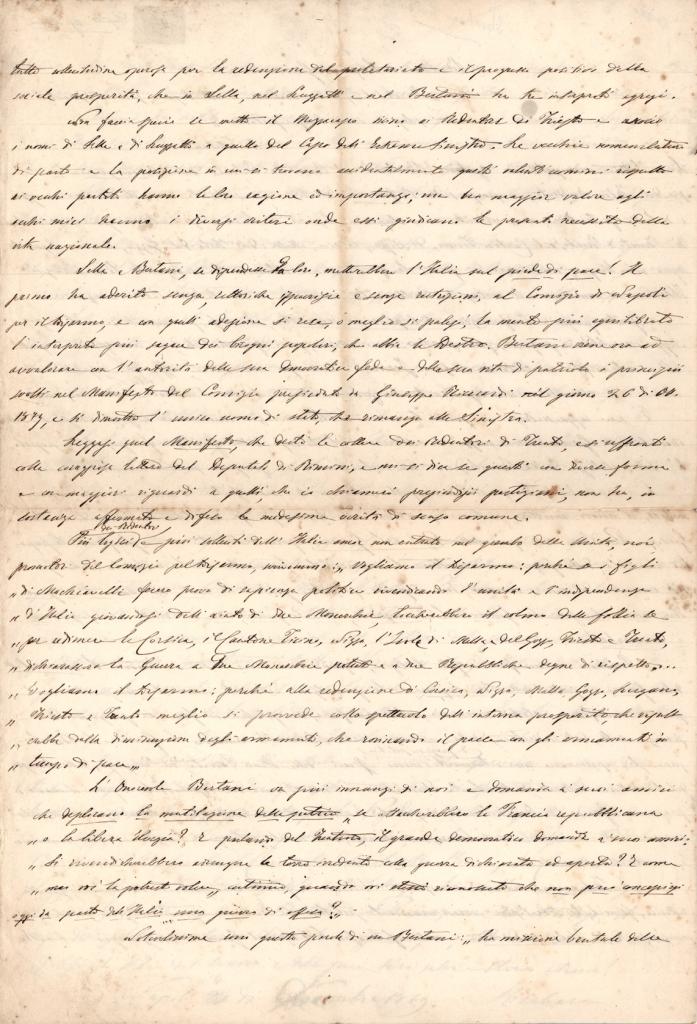 tutta sollecitudine operosa per la redenzione del proletariato e il progresso positivo della
sociale prosperità, che in Sella, nel Luzzatti e nel Bertani ha tre interpreti egregi.
Non faccia specie se metto il Mezzacapo vicino ai Redentori di Trieste e associo
i nomi di Sella e di Luzzatti a quello del Capo dell'Estrema Sinistra. Le vecchie nomenclature
di parte e la posizione in cui si trovano accidentalmente questi valenti uomini rispetto
ai vecchi partiti hanno la loro ragione ed importanza; ma ben maggior valore agli
occhi miei hanno i diversi criteri onde essi giudicano le presenti necessità della
vita nazionale.
Sella e Bertani, se dipendesse da loro, metterebbero l'Italia sul piede di pace! Il
primo ha aderito senza rettoriche ipocrisie e senza restrizioni, al Comizio di Napoli
pel disarmo, e con quell'adesione si rese, o meglio si palesò, la mente più equilibrata
l'interprete più sagace dei bisogni popolari, che abbia la Destra. Bertani viene ora ad
avvalorare con l'autorità della sua democratica fede e della sua vita di patriota i principii
svolti nel Manifesto del Comizio presieduto da Giuseppe Ricciardi nel giorno 26 di
1879, e si dimostra l'unico uomo di stato, che rimanga alla Sinistra.
Leggasi quel Manifesto, che destò la collera dei Redentori di Trento, e si confronti
colla coraggiosa lettera del Deputato di Rimini, e mi si dica se questi con diversa forma
e con maggiori riguardi a quelli, che io chiamerei pregiudizi partigiani, non ha, in
sostanza affermato e difeso la medesima verità di senso comune.
dei Redentori
Più logici e più solleciti dell'Italia ancor non entrata nel grembo della Unità, noi,
promotori del Comizio pel disarmo, scrivevamo: „ Vogliamo il disarmo: perchè se i figli
„ di Machiavelli fecero prova di sapienza politica rivendicando l'unità e l'indipendenza
„ d'Italia giovandosi dell'aiuto di due Monarchie, toccherebbero il colmo della follia se
„ per redimere la Corsica, il Cantone Ticino, Nizza, l'Isola di Malta e del Gozzo, Trieste e Trento,
„ dichiarassero la Guerra a tre Monarchie potenti e a due Repubbliche degne di rispetto....
„ Vogliamo il disarmo: perchè alla redenzione di Corsica, Nizza, Malta, Gozzo, Lugano,
„ Trieste e Trento meglio si provvede collo spettacolo dell'interna prosperità, che risulte-
„ rebbe dalla diminuzione degli armamenti, che rovinando il paese con gli armamenti in
„ tempo di pace „
L'Onorevole Bertani va più innanzi di noi e domanda a' suoi amici
che deplorano la mutilazione della patria „ se attaccherebbero la Francia repubblicana
„ o la libera Elvezia? E parlando del Trentino, il grande democratico domanda a' suoi amici:
„ Si vorrebbero adunque le terre irredente colla guerra dichiarata ed aperta? E come
„ mai voi la potreste volere, continua, quando voi stessi riconoscete che non può concepirsi
oggi da parte dell'Italia una guerra di offesa? „
Notevolissime sono queste parole di un Bertani: „ la missione brutale delle